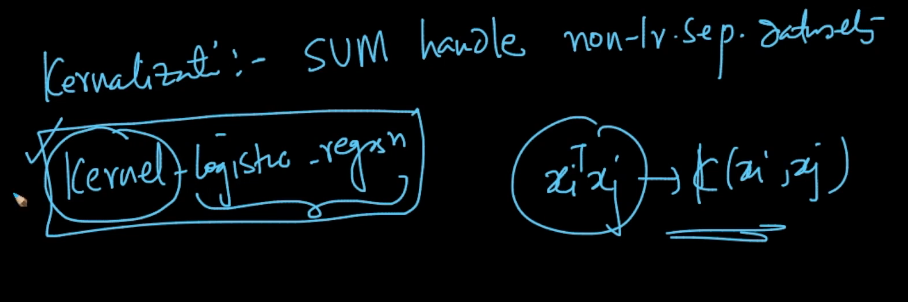 Kernalizati:- SVM handle non-lr.sep. datasets
Kernel-logistic-regssn xiᵀxj → K(xi,xj)